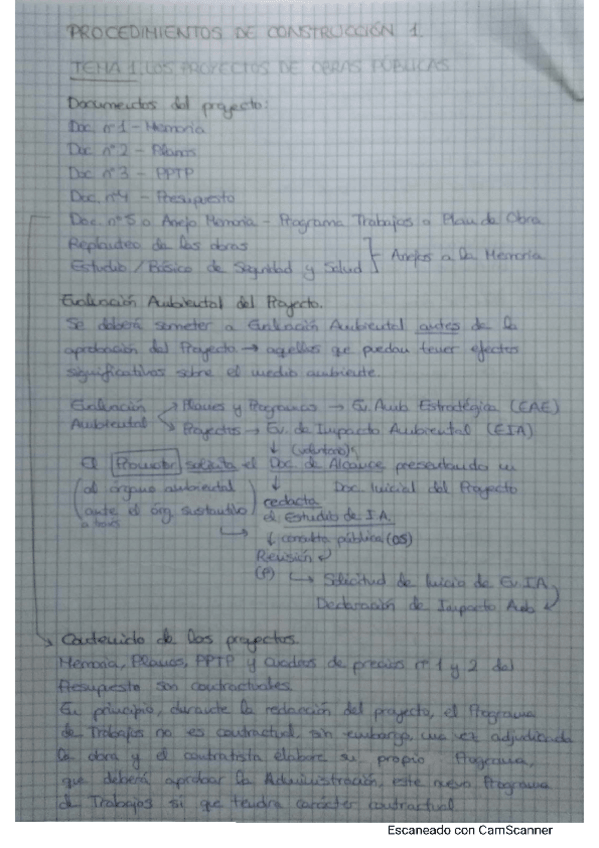 PROCEDIMIENTOS DE CONSTRUCCIÓN 1.
TEMA 1. LOS PROYECTOS DE OBRAS PÚBLICAS
Documentos del proyecto:
Doc nº1 - Memoria
Doc nº2 - Planos
Doc nº3 - PPTP
Doc nº4 - Presupuesto
Doc. nº5 o Anejo Memoria - Programa Trabajos o Plan de Obra
Replanteo de las obras
Estudio / Básico de Seguridad y Salud } Anejos a la Memoria
Evaluación Ambiental del Proyecto.
Se deberá someter a Evaluación Ambiental antes de la
aprobación del Proyecto → aquellos que puedan tener efectos
significativos sobre el medio ambiente.
Evaluación → Planes y Programas → Ev. Amb. Estratégica (EAE)
Ambiental → Proyectos → Ev. de Impacto Ambiental (EIA)
↓ (voluntario)
El Promotor solicita el Doc. de Alcance presentando un
(al órgano ambiental ↓ Doc. Inicial del Proyecto
ante el órg sustantivo) redacta
a través el Estudio de I.A.
↳ ↓ consulta pública (OS)
Revisión ↵
(P) ↳ Solicitud de Inicio de Ev. IA
Declaración de Impacto Amb ↵
Contenido de los proyectos.
Memoria, Planos, PPTP y cuadros de precios nº 1 y 2 del
Presupuesto son contractuales.
En principio, durante la redacción del proyecto, el Programa
de Trabajos no es contractual, sin embargo, una vez adjudicada
la obra y el contratista elabore su propio Programa,
que deberá aprobar la Administración, este nuevo Programa
de Trabajos si que tendra carácter contractual.
Escaneado con CamScanner